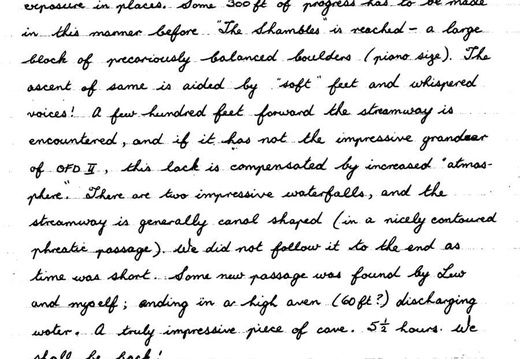 exposure in places. Some 300 ft of progress has to be made
in this manner before "The Shambles" is reached - a large
block of precariously balanced boulders (piano size). The
ascent of same is aided by "soft" feet and whispered
voices! A few hundred feet forward the streamway is
encountered, and if it has not the impressive grandeer
of OFD II, this lack is compensated by increased "atmos-
phere". There are two impressive waterfalls, and the
streamway is generally canal shaped (in a nicely contoured
phreatic passage). We did not follow it to the end as
time was short. Some new passage was found by Lew
and myself; ending in a high aven (60 ft?) discharging
water. A truly impressive piece of cave. 5½ hours. We
shall be back!